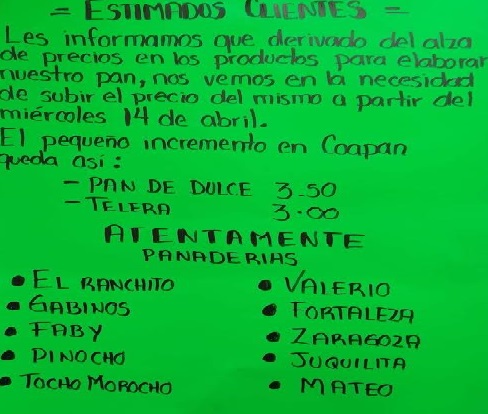 = ESTIMADOS CLIENTES =
Les informamos que derivado del alza
de precios en los productos para elaborar
nuestro pan, nos vemos en la necesidad
de subir el precio del mismo a partir del
miércoles 14 de abril.
El pequeño incremento en Coapan
queda así:
- PAN DE DULCE 3.50
- TELERA 3.00
ATENTAMENTE
PANADERIAS
• EL RANCHITO • VALERIO
• GABINOS • FORTALEZA
• FABY • ZARAGOZA
• PINOCHO • JUQUILITA
• TOCHO MOROCHO • MATEO